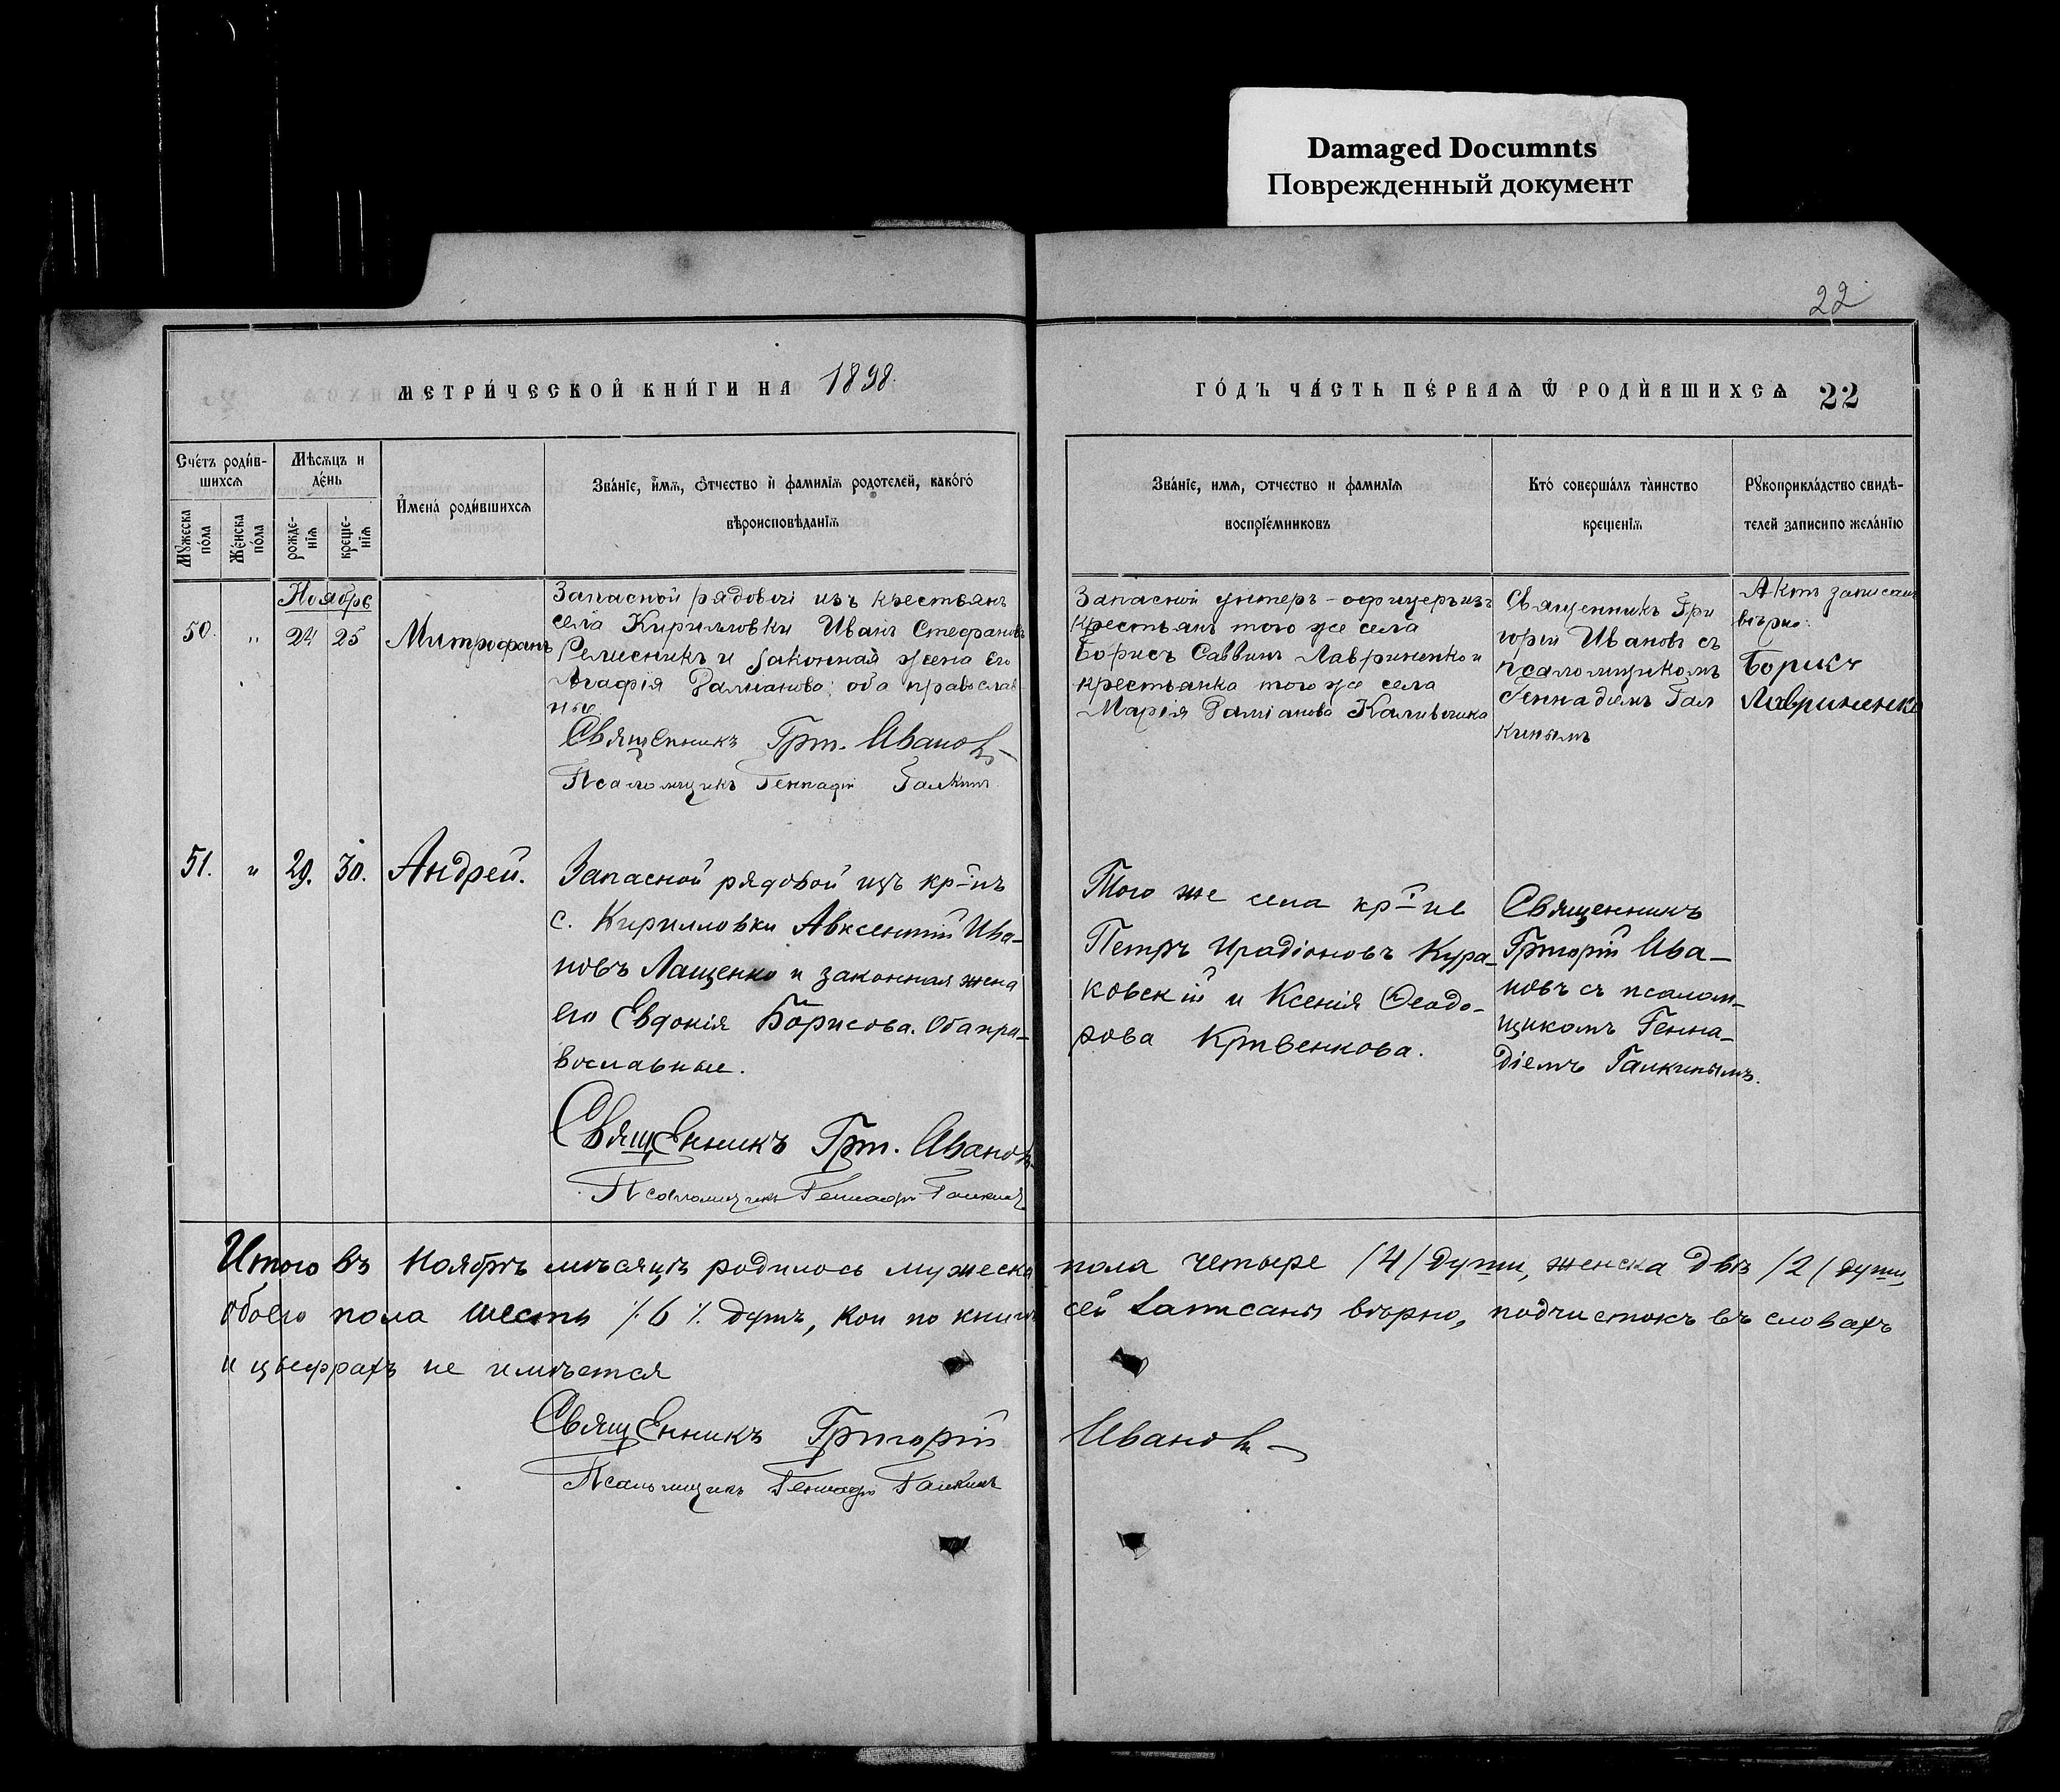 Damaged Documnts
Поврежденный документ
22
МЕТРИ́ЧЕСКОЙ КНИ́ГИ НА 1898.
ГО́ДЪ ЧА́СТЬ ПЕ́РВАѦ Ѿ РОДИ́ВШИХСѦ 22
Сче́тъ роди́в-
шихсѧ
Мѣсѧцъ и
де́нь
Мꙋжеска
по́ла
Же́нска
по́ла
рожде-
нїѧ
креще-
нїѧ
И҆мена̀ роди́вшихсѧ
Зва́нїе, и҆мѧ, ѻ҆тчество и҆ фамилїѧ родо́телей, како́го
вѣроисповѣданїѧ
Зва́нїе, имѧ, отчество и фамилїѧ
воспрїе́мниковъ
Кто̀ соверша́лъ та̀инство
креще́нїѧ
Рꙋкоприкла́дство свидѣ-
телей записи по жела́нїю
Ноябрь
50. " 24 25 Митрофанъ
Запасной рядовой изъ крестьянъ
села Кирилловки Иванъ Стефановъ
Ремесникъ и законная жена его
Агафія Даміанова; оба православ-
ные
Священникъ Григ. Ивановъ
Псаломщикъ Геннадій Галкинъ
Запасной унтеръ-офицеръ изъ
крестьянъ того же села
Борисъ Саввинъ Лавриненко и
крестьянка того же села
Марія Даміанова
Священникъ Гри
горій Ивановъ съ
псаломщикомъ
Геннадіемъ Гал
кинымъ
Актъ записанъ
вѣрно:
Борисъ
Лавриненко
51. " 29. 30. Андрей.
Запасной рядовой изъ кр-нъ
с. Кирилловки Авксентій Ива-
новъ Лащенко и законная жена
его Евдокія Борисова. Оба пра-
вославные.
Священникъ Григ. Ивановъ
Псаломщикъ Геннадій Галкинъ
Того же села кр-не
Петръ Ирадіоновъ Кура-
ковскій и Ксенія Ѳеодо-
рова Кривенкова.
Священникъ
Григорій Ива-
новъ съ псалом-
щикомъ Генна-
діемъ Галкинымъ.
Итого въ Ноябрѣ мѣсяцѣ родилось мужеска пола четыре /4/ души, женска двѣ /2/ души,
обоего пола шесть /.6 /. душъ, кои по книгѣ сей записаны вѣрно, подчистокъ въ словахъ
и цыфрахъ не имѣется
Священникъ Григорій Ивановъ
Псаломщикъ Геннадій Галкинъ